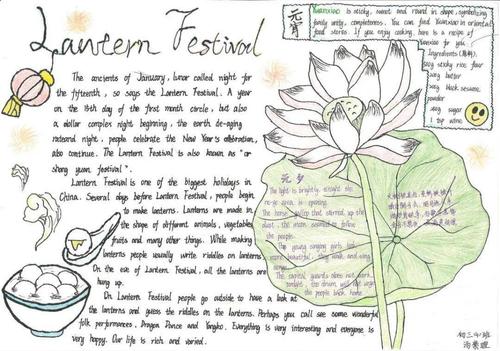 Lantern Festival
The ancients of January, lunar called night for
the fifteenth, so says the Lantern Festival. A year
on the 15th day of the first month circle, but also
a dollar complex night beginning, the earth de-aging
natsand night, people celebrate the New Year's celebration,
also continue. The Lantern Festival is also known as "or
shang yuan festival".
Lantern Festival is one of the biggest holidays in
China. Several days before Lantern Festival, people begin
to make lanterns. Lanterns are made in
the shape of different animals, vegetables,
fruits and many other things. While making
lanterns people usually write riddles on lanterns.
On the eve of Lantern Festival, all the lanterns are
hung up.
On Lantern Festival people go outside to have a look at
the lanterns and guess the riddles on the lanterns. Perhaps you call see some wonderful
folk performances. Dragon Dance and Yangko. Everything is very interesting and everyone is
very happy. Our life is rich and varied.
元宵
Yuanxiao is sticky, sweet and round in shape, symbolizing
family unity, completeness. You can find Yuanxiao in oriental
food stores. If you enjoy cooking, here is a recipe of
Yuanxiao for you.
Ingredients
sticky rice flour
butter
black sesame
powder
sugar
1 tbsp wine
元夕
The light is brightly,
is growing.
The horse that stirred up the
dust, the moon seemed to
the people.
The young singing girls look
more beautiful, they walk and sing
The capital guards does not work
tonight, the drum will not urge
the people back home.
初三